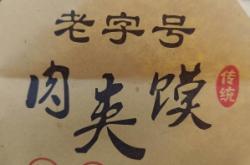 老字号
肉夹馍
传统